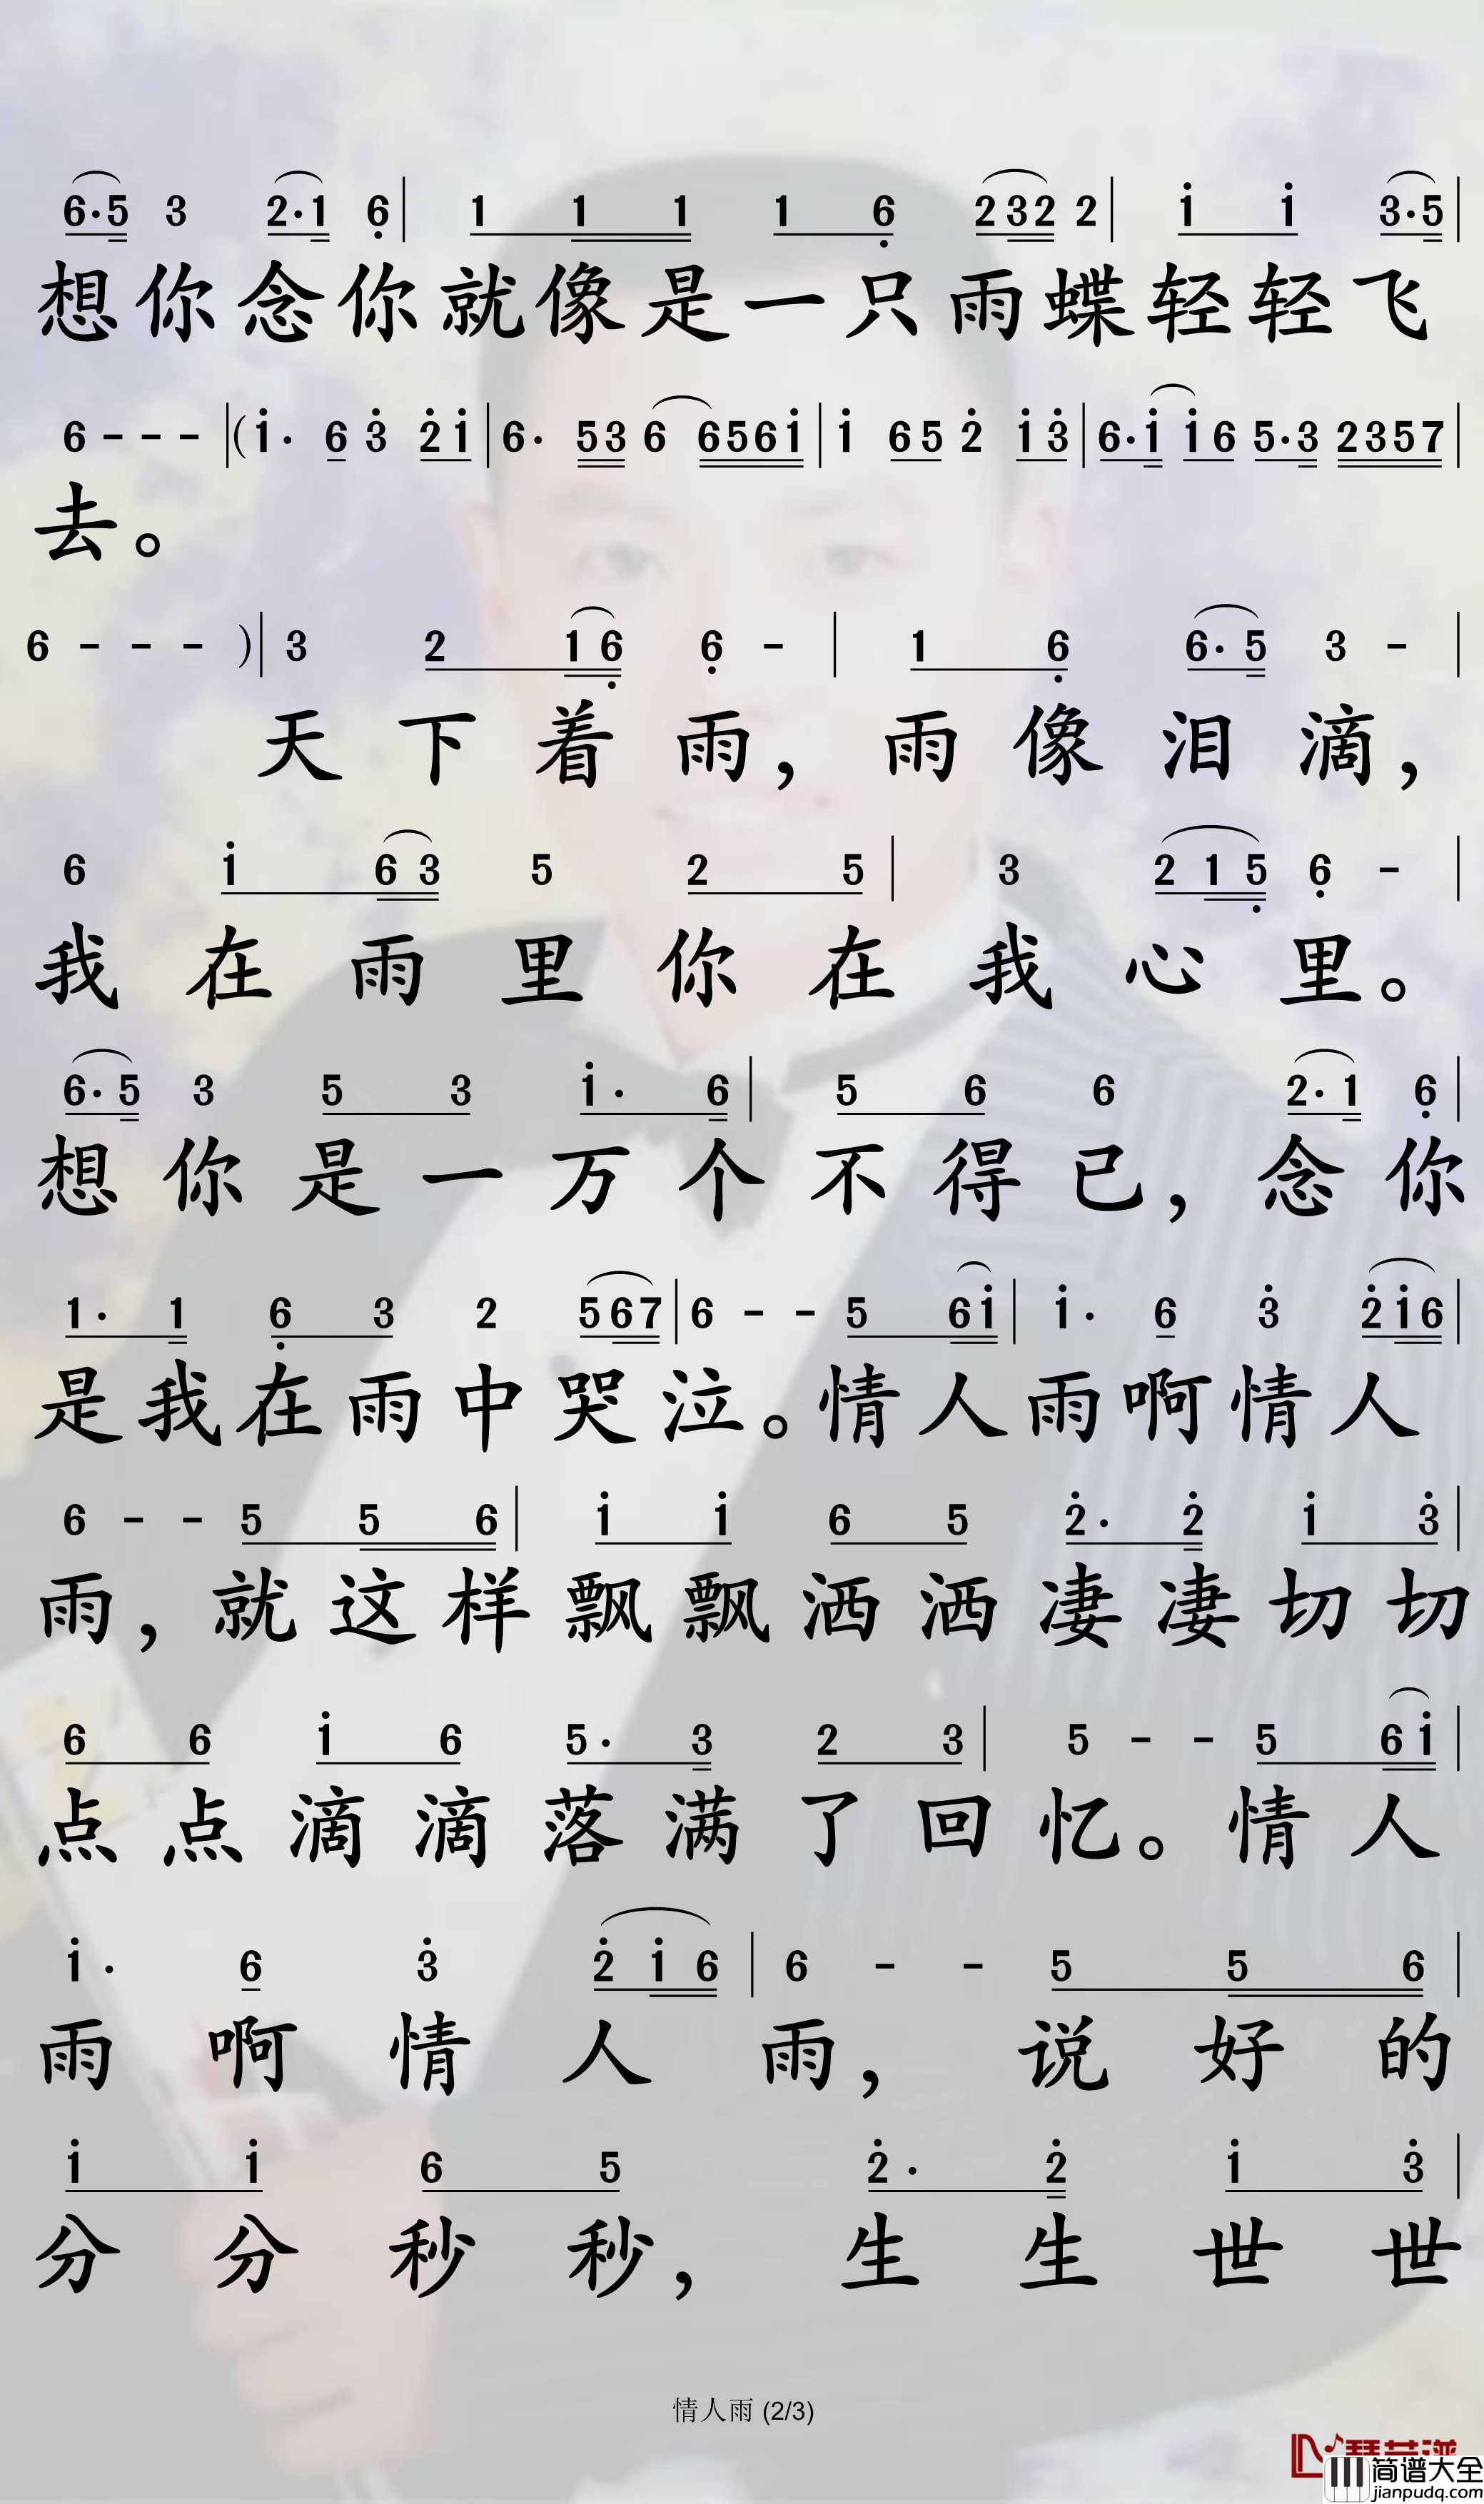 6·5 3 2·1 6̣ | 1 1 1 1 6̣ 2 3 2 2 | 1̇ 1̇ 3·5 |
想你念你就像是一只雨蝶轻轻飞
6 - - - | ( 1̇· 6 3̇ 2̇ 1̇ | 6· 5 3 6 6 5 6 1̇ | 1̇ 6 5 2̇ 1̇ 3̇ | 6·1̇ 1̇ 6 5·3 2 3 5 7 |
去。
6 - - - ) | 3 2 1 6̣ 6̣ - | 1 6̣ 6·5 3 - |
天下着雨，雨像泪滴，
6 1̇ 6 3 5 2 5 | 3 2 1 5̣ 6̣ - |
我在雨里你在我心里。
6·5 3 5 3 1̇· 6 | 5 6 6 2·1 6̣ |
想你是一万个不得已，念你
1· 1 6̣ 3 2 5 6 7 | 6 - - 5 6 1̇ | 1̇· 6 3̇ 2̇ 1̇ 6 |
是我在雨中哭泣。情人雨啊情人
6 - - 5 5 6 | 1̇ 1̇ 6 5 2̇· 2̇ 1̇ 3̇ |
雨，就这样飘飘洒洒凄凄切切
6 6 1̇ 6 5· 3 2 3 | 5 - - 5 6 1̇ |
点点滴滴落满了回忆。情人
1̇· 6 3̇ 2̇ 1̇ 6 | 6 - - 5 5 6 |
雨啊情人雨，说好的
1̇ 1̇ 6 5 2̇· 2̇ 1̇ 3̇ |
分分秒秒，生生世世
情人雨 (2/3)
简谱大全
jianpudq.com